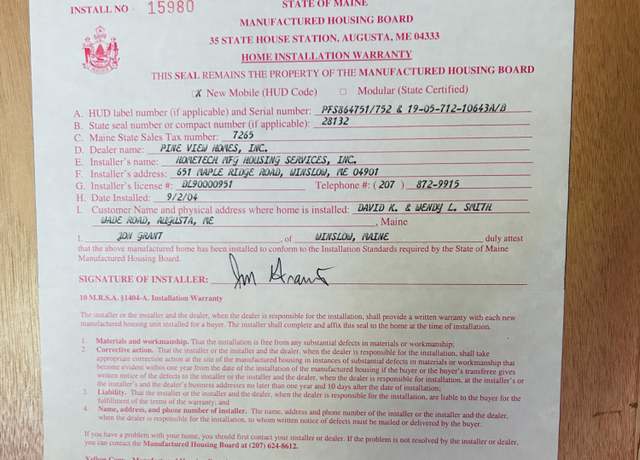 STATE OF MAINE
INSTALL NO 15980
MANUFACTURED HOUSING BOARD
35 STATE HOUSE STATION, AUGUSTA, ME 04333
HOME INSTALLATION WARRANTY
THIS SEAL REMAINS THE PROPERTY OF THE MANUFACTURED HOUSING BOARD
X New Mobile (HUD Code) □ Modular (State Certified)
A. HUD label number (if applicable) and Serial number: PFS864751/752 & 19-05-712-10643A/B
B. State seal number or compact number (if applicable): 28132
C. Maine State Sales Tax number: 7265
D. Dealer name: PINE VIEW HOMES, INC.
E. Installer's name: HOMETECH MFG HOUSING SERVICES, INC.
F. Installer's address: 651 MAPLE RIDGE ROAD, WINSLOW, ME 04901
G. Installer's license #: DL90000951 Telephone #: (207 ) 872-9915
H. Date Installed: 9/2/04
I. Customer Name and physical address where home is installed: DAVID K. & WENDY L. SMITH
WADE ROAD, AUGUSTA, ME , Maine
I, JON GRANT , of WINSLOW, MAINE duly attest
that the above manufactured home has been installed to conform to the Installation Standards required by the State of Maine
Manufactured Housing Board.
SIGNATURE OF INSTALLER: Jon Grant
10 M.R.S.A. §1404-A. Installation Warranty
The installer or the installer and the dealer, when the dealer is responsible for the installation, shall provide a written warranty with each new
manufactured housing unit installed for a buyer. The installer shall complete and affix this seal to the home at the time of installation.
1. Materials and workmanship. That the installation is free from any substantial defects in materials or workmanship;
2. Corrective action. That the installer or the installer and the dealer, when the dealer is responsible for the installation, shall take
appropriate corrective action at the site of the manufactured housing in instances of substantial defects in materials or workmanship that
become evident within one year from the date of the installation of the manufactured housing if the buyer or the buyer's transferee gives
written notice of the defects to the installer or the installer and the dealer, when the dealer is responsible for installation, at the installer's or
the installer's and the dealer's business addresses no later than one year and 10 days after the date of installation;
3. Liability. That the installer or the installer and the dealer, when the dealer is responsible for the installation, are liable to the buyer for the
fulfillment of the terms of the warranty; and
4. Name, address, and phone number of installer. The name, address and phone number of the installer or the installer and the dealer,
when the dealer is responsible for the installation, to whom written notice of defects must be mailed or delivered by the buyer.
If you have a problem with your home, you should first contact your installer or dealer. If the problem is not resolved by the installer or dealer,
you can contact the Manufactured Housing Board at (207) 624-8612.